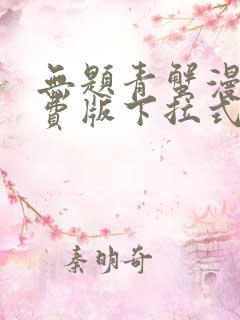 無題青蟹漫
費版下拉式
秦明奇